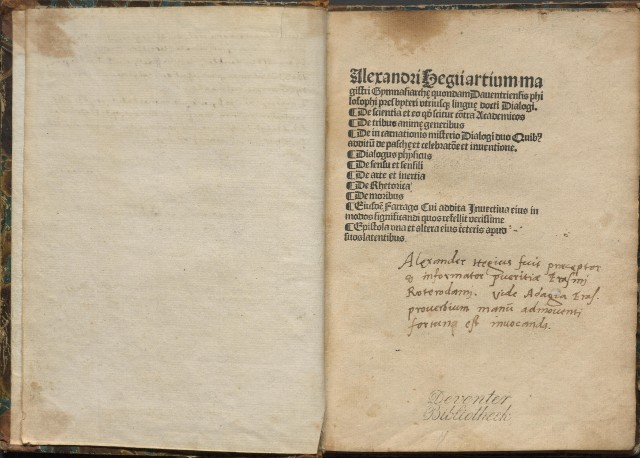 Alexandri Hegii artium ma
gistri Gymnasiarchę quondam Dauentriensis phi
losophi presbyteri vtriusqȝ lingue docti Dialogi.
¶ De scientia et eo qď scitur cōtra Academicos
¶ De tribus animę generibus
¶ De incarnationis misterio Dialogi duo Quibꝰ
additū de paschę et celebratōe et inuentione.
¶ Dialogus physicus
¶ De sensu et sensili
¶ De arte et inertia
¶ De Rhetorica
¶ De moribus
¶ Eiusdē Farrago Cui addita Inuectiua eius in
modos significandi quos refellit verissime
¶ Epistola vna et altera eius ceteris apud
suos latentibus
Alexander Hegius fuit præceptor
& informator pueritiæ Erasmi
Roterodami. Vide Adagia Eras.
proverbium manū admoventi
fortuna est invocanda.
Deventer
Bibliotheek